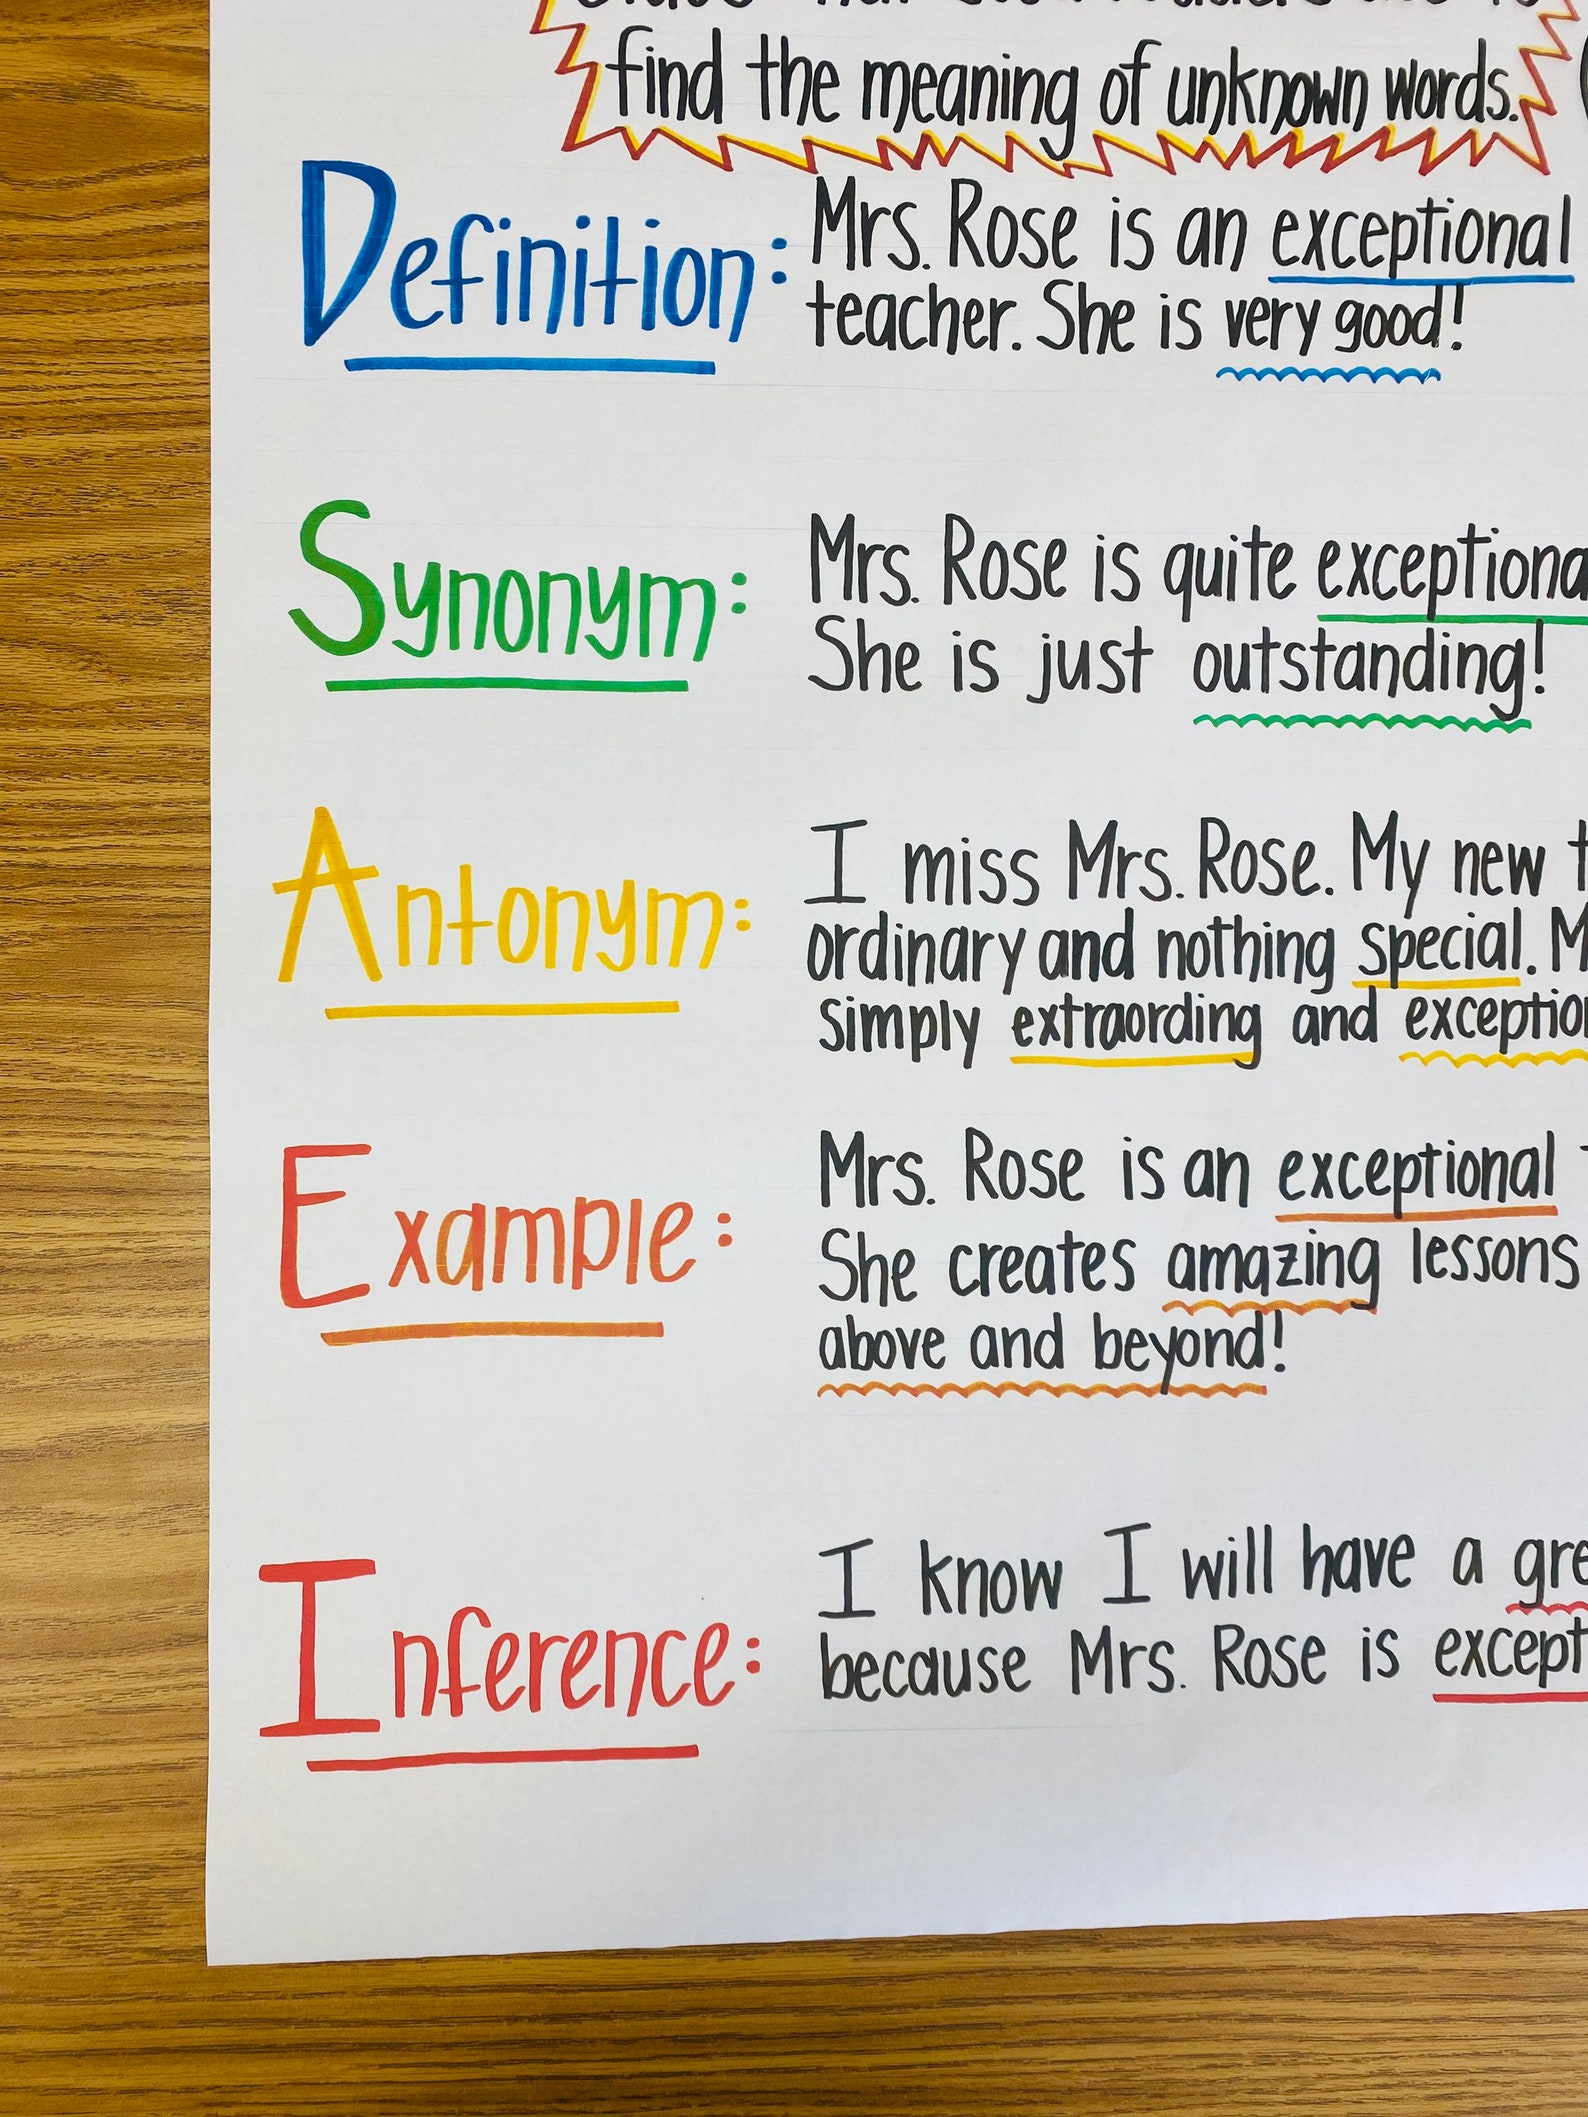 find the meaning of unknown words.
Definition: Mrs. Rose is an exceptional
teacher. She is very good!
Synonym: Mrs. Rose is quite exceptiona
She is just outstanding!
Antonym: I miss Mrs. Rose. My new t
ordinary and nothing special. M
simply extraording and exception
Example: Mrs. Rose is an exceptional
She creates amazing lessons
above and beyond!
Inference: I know I will have a gre
because Mrs. Rose is except